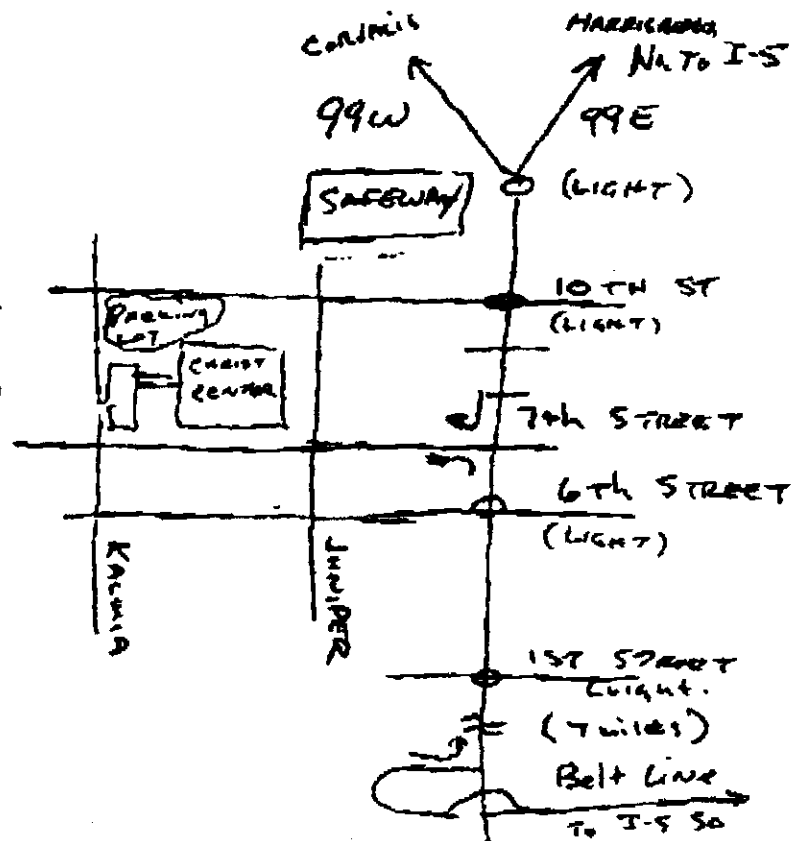 CORVALLIS
HARRISBURG
No. To I-5
99W
99E
SAFEWAY
(LIGHT)
10TH ST
(LIGHT)
PARKING
LOT
CHRIST
CENTER
7th STREET
6th STREET
(LIGHT)
KALMIA
JUNIPER
1ST STREET
Light.
(7 miles)
Belt Line
To I-5 So